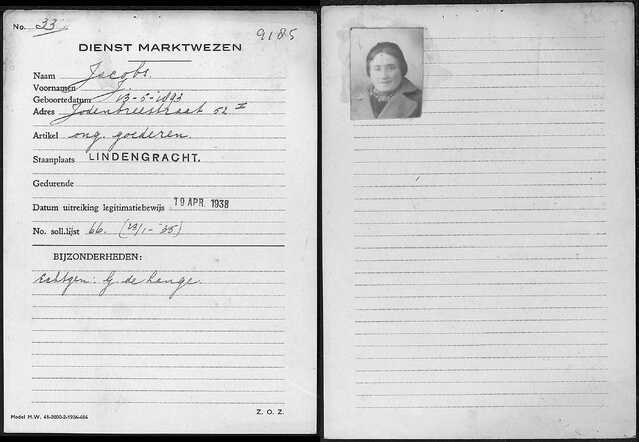 No. 33
9185
DIENST MARKTWEZEN
Naam Jacobs.
Voornamen J.
Geboortedatum 13-5-1893
Adres Jodenbreestraat 52 II
Artikel ong. goederen.
Staanplaats LINDENGRACHT.
Gedurende
Datum uitreiking legitimatiebewijs 19 APR. 1938
No. soll.lijst 66. (23/1-'35)
BIJZONDERHEDEN:
Echtgen: G. de Lange.
Model M.W. 41-2000-2-1936-684
Z. O. Z.